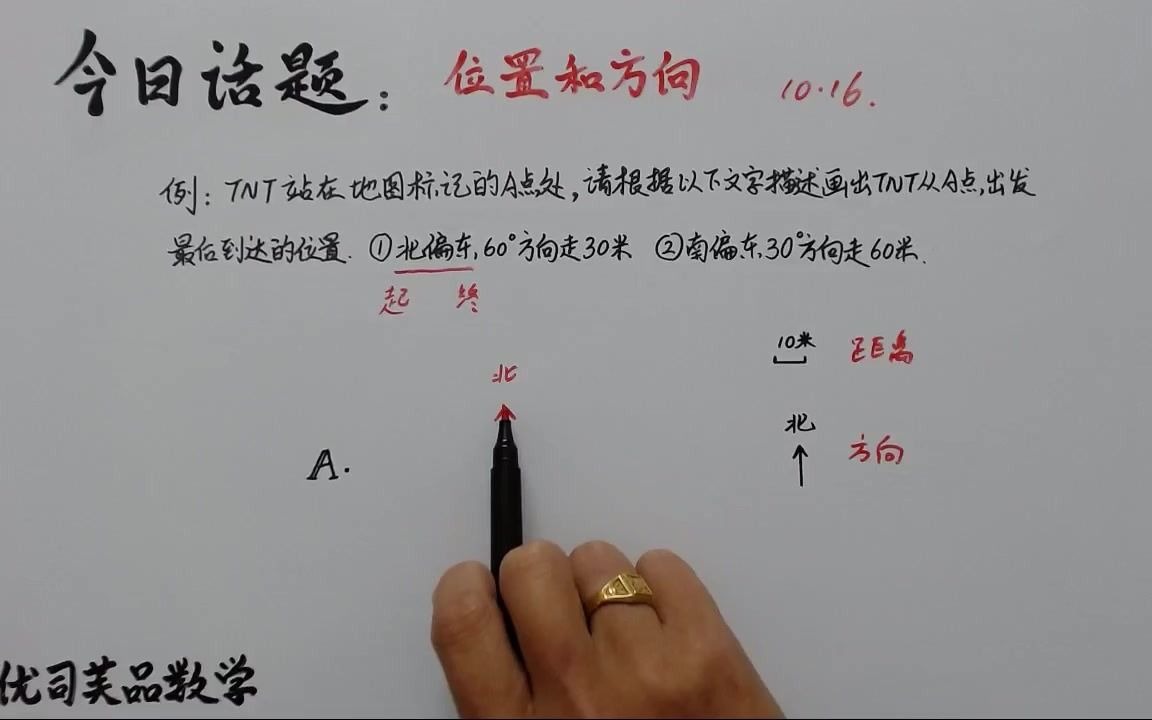 今日话题：位置和方向 10.16.
例：TNT站在地图标记的A点处，请根据以下文字描述画出TNT从A点出发
最后到达的位置. ①北偏东60°方向走30米 ②南偏东30°方向走60米.
起 终
10米 距离
北
北 方向
A.
优司芙品数学